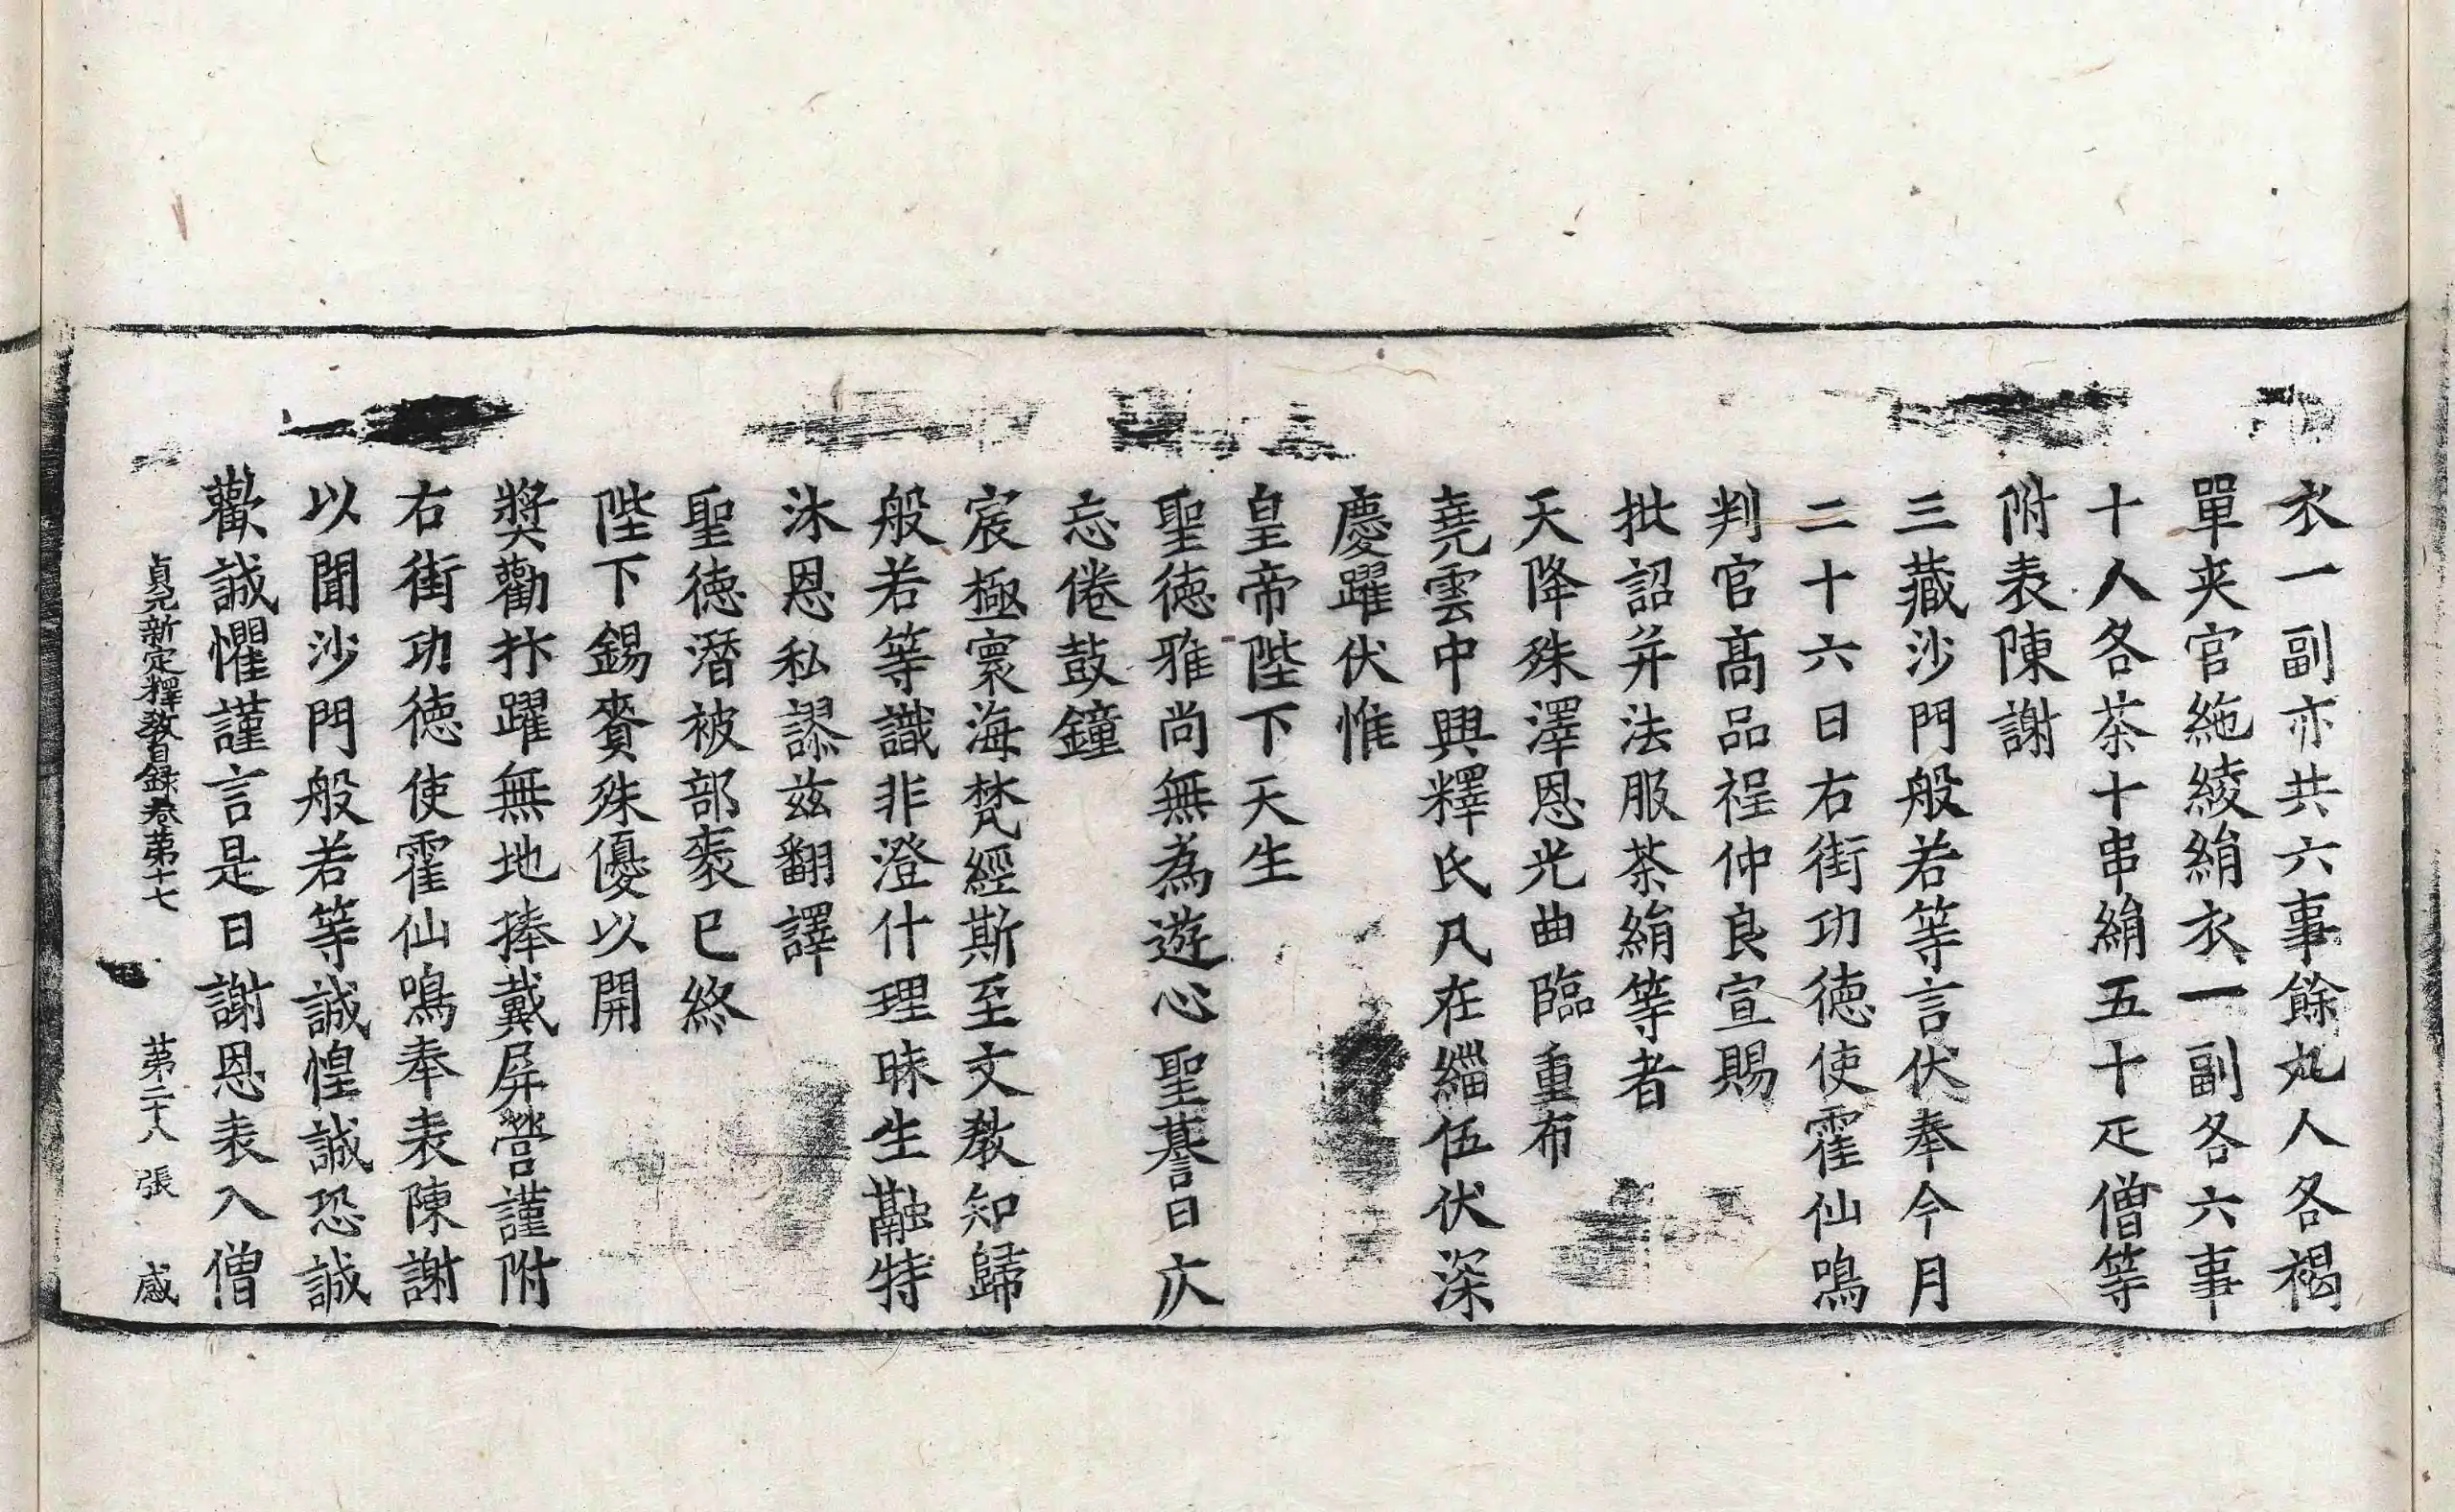 衣一副亦共六事餘九人各褐
單夾官絁綾絹衣一副各六事
十人各茶十串絹五十疋僧等
附表陳謝
三藏沙門般若等言伏奉今月
二十六日右街功德使霍仙鳴
判官高品程仲良宣賜
批詔并法服茶絹等者
天降殊澤恩光曲臨重布
堯雲中興釋氏凡在緇伍伏深
慶躍伏惟
皇帝陛下天生
聖德雅尚無為遊心聖朞日庂
忘倦鼓鐘
宸極寰海梵經斯至文教知歸
般若等識非澄什理昧生融特
沐恩私謬茲翻譯
聖德潛被部袠已終
陛下錫賚殊優以開
獎勸抃躍無地捧戴屏營謹附
右街功德使霍仙鳴奉表陳謝
以聞沙門般若等誠惶誠恐誠
歡誠懼謹言是日謝恩表入僧
貞元新定釋教目錄卷第十七 第二十八張 感